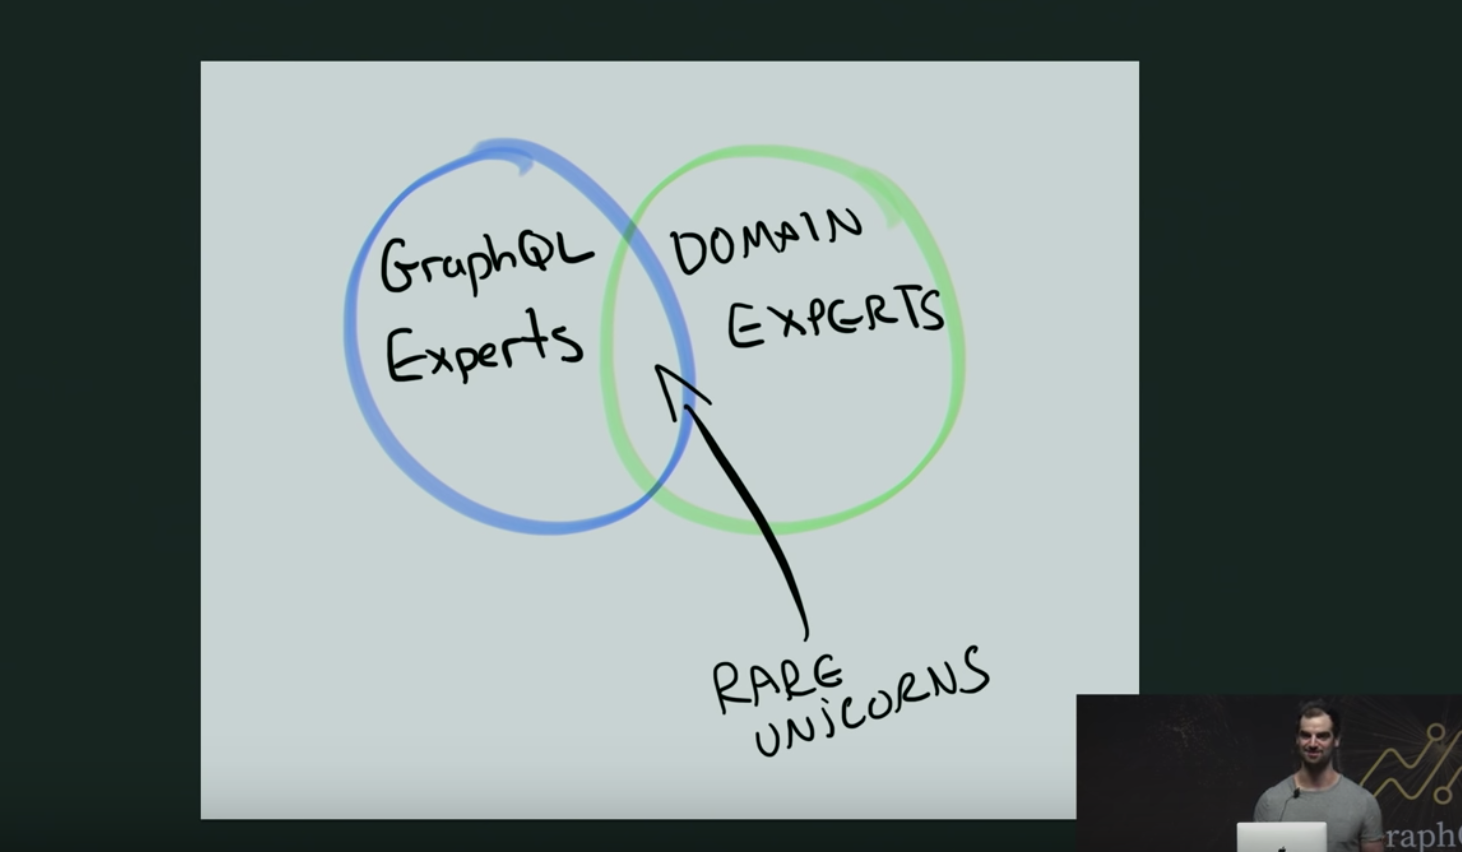 GraphQL
Experts
DOMAIN
EXPERTS
RARE
UNICORNS
raphQ